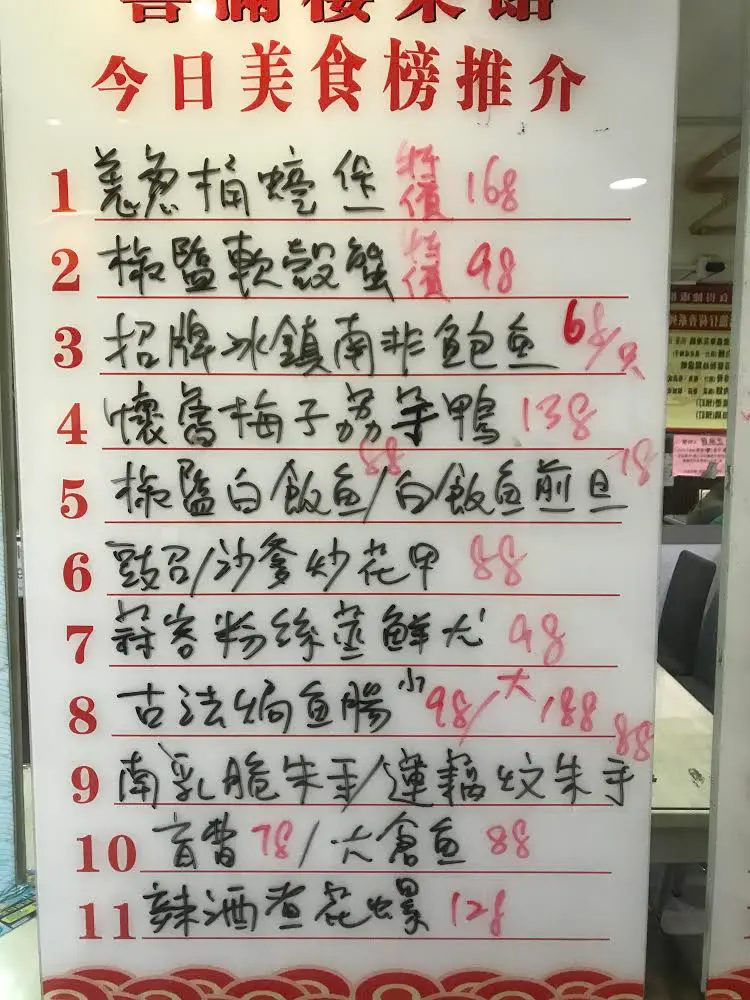 喜滿樓菜館
今日美食榜推介
1 羌葱桶蠔煲 特價 168
2 椒鹽軟殼蟹 特價 98
3 招牌冰鎮南非鮑魚 68/只
4 懷舊梅子荔芋鴨 138
5 椒鹽白飯魚88/白飯魚煎旦78
6 豉召/沙爹炒花甲 88
7 蒜容粉絲蒸鮮尤 98
8 古法焗魚腸 小98/大188
9 南乳脆朱手/蓮藕炆朱手88
10 盲曹78/大倉魚 88
11 辣酒煮花螺 128